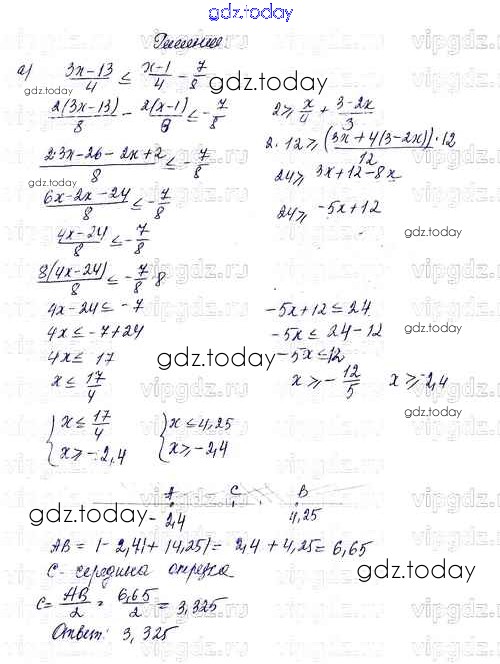 gdz.today
Решение
а) (3x-13)/4 ≤ (x-1)/4 - 7/8
gdz.today
2(3x-13)/8 - 2(x-1)/8 ≤ -7/8
2·3x-26-2x+2/8 ≤ -7/8
gdz.today
6x-2x-24/8 ≤ -7/8
4x-24/8 ≤ -7/8
8(4x-24)/8 ≤ -7/8·8
4x-24 ≤ -7
4x ≤ -7+24
4x ≤ 17
x ≤ 17/4
2 ≥ x/4 + 3-2x/3
2·12 ≥ (3x+4(3-2x))·12/12
24 ≥ 3x+12-8x
24 ≥ -5x+12
gdz.today
-5x+12 ≤ 24
-5x ≤ 24-12
gdz.today
-5x ≤ 12
x ≥ -12/5 x ≥ -2,4
{ x ≤ 17/4 { x ≤ 4,25
{ x ≥ -2,4 { x ≥ -2,4
gdz.today
A C B
-2,4 4,25
gdz.today
AB = |-2,4| + |4,25| = 2,4 + 4,25 = 6,65
C - середина отрезка
gdz.today
C = AB/2 = 6,65/2 = 3,325
Ответ: 3,325
gdz.today
vipgdz.ru